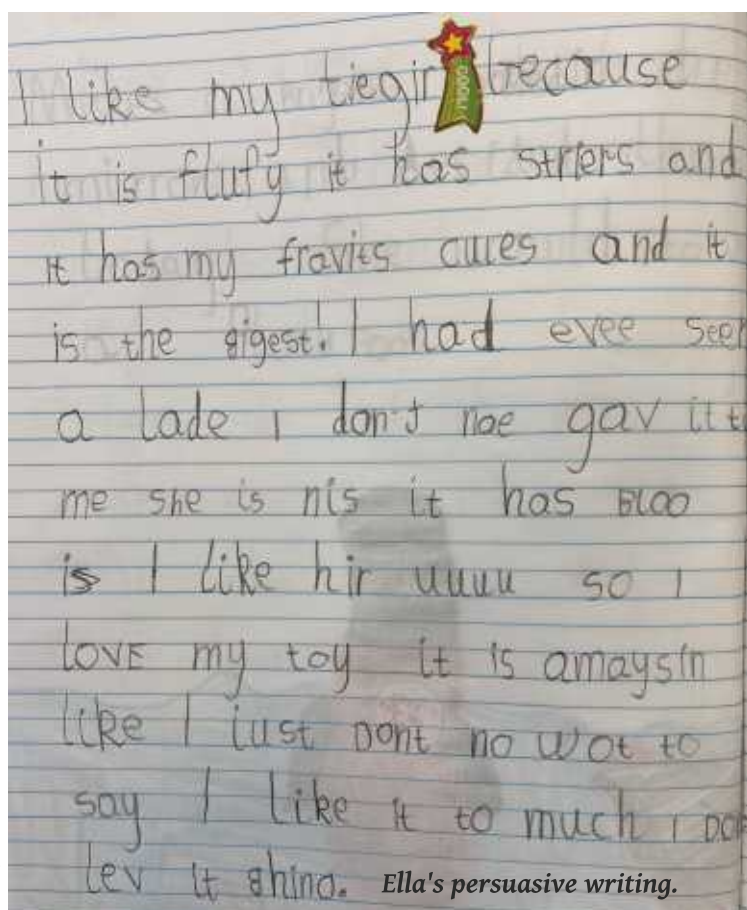 I like my tiegir because
it is flufy it has strlers and
it has my fravits cules and it
is the bigest! I had evee seen
a lade I don't noe gav it t
me she is nis it has BLOO
is I like hir uuuu so I
LOVE my toy it is amaysin
like I just Dont no wot to
say I like it to much I Do
lev it bhind.
Ella's persuasive writing.